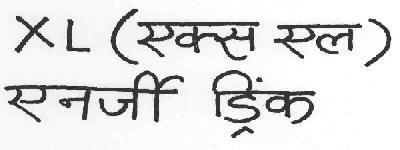 XL (एक्स एल)
एनर्जी ड्रिंक